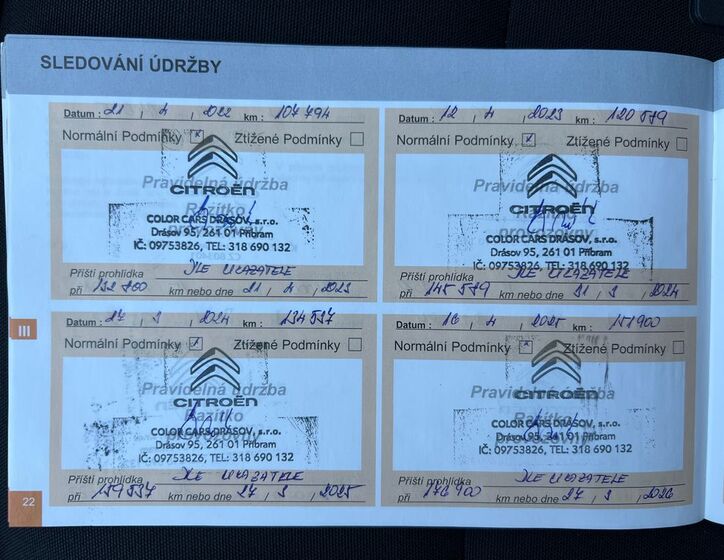 SLEDOVÁNÍ ÚDRŽBY
Datum : 21 / 4 / 2022 km : 107 794
Normální Podmínky x Ztížené Podmínky
Pravidelná údržba
CITROËN
Razítko
COLOR CARS DRÁSOV, s.r.o.
Drásov 95, 261 01 Příbram
IČ: 09753826, TEL: 318 690 132
Příští prohlídka DLE UKAZATELE
při km nebo dne 21 / 4 / 2023
Datum : 12 / 4 / 2023 km : 120 589
Normální Podmínky x Ztížené Podmínky
Pravidelná údržba
CITROËN
Razítko
provozovny
COLOR CARS DRÁSOV, s.r.o.
Drásov 95, 261 01 Příbram
IČ: 09753826, TEL: 318 690 132
Příští prohlídka DLE UKAZATELE
při 145 589 km nebo dne 31 / 3 / 2024
III
Datum : 27 / 3 / 2024 km : 134 537
Normální Podmínky x Ztížené Podmínky
Pravidelná údržba
CITROËN
Razítko
provozovny
COLOR CARS DRÁSOV, s.r.o.
Drásov 95, 261 01 Příbram
IČ: 09753826, TEL: 318 690 132
Příští prohlídka DLE UKAZATELE
při 159 537 km nebo dne 27 / 3 / 2025
Datum : 16 / 4 / 2025 km : 151 900
Normální Podmínky x Ztížené Podmínky
Pravidelná údržba
CITROËN
Razítko
provozovny
COLOR CARS DRÁSOV, s.r.o.
Drásov 95, 261 01 Příbram
IČ: 09753826, TEL: 318 690 132
Příští prohlídka DLE UKAZATELE
při 176 900 km nebo dne 27 / 3 / 2026
22